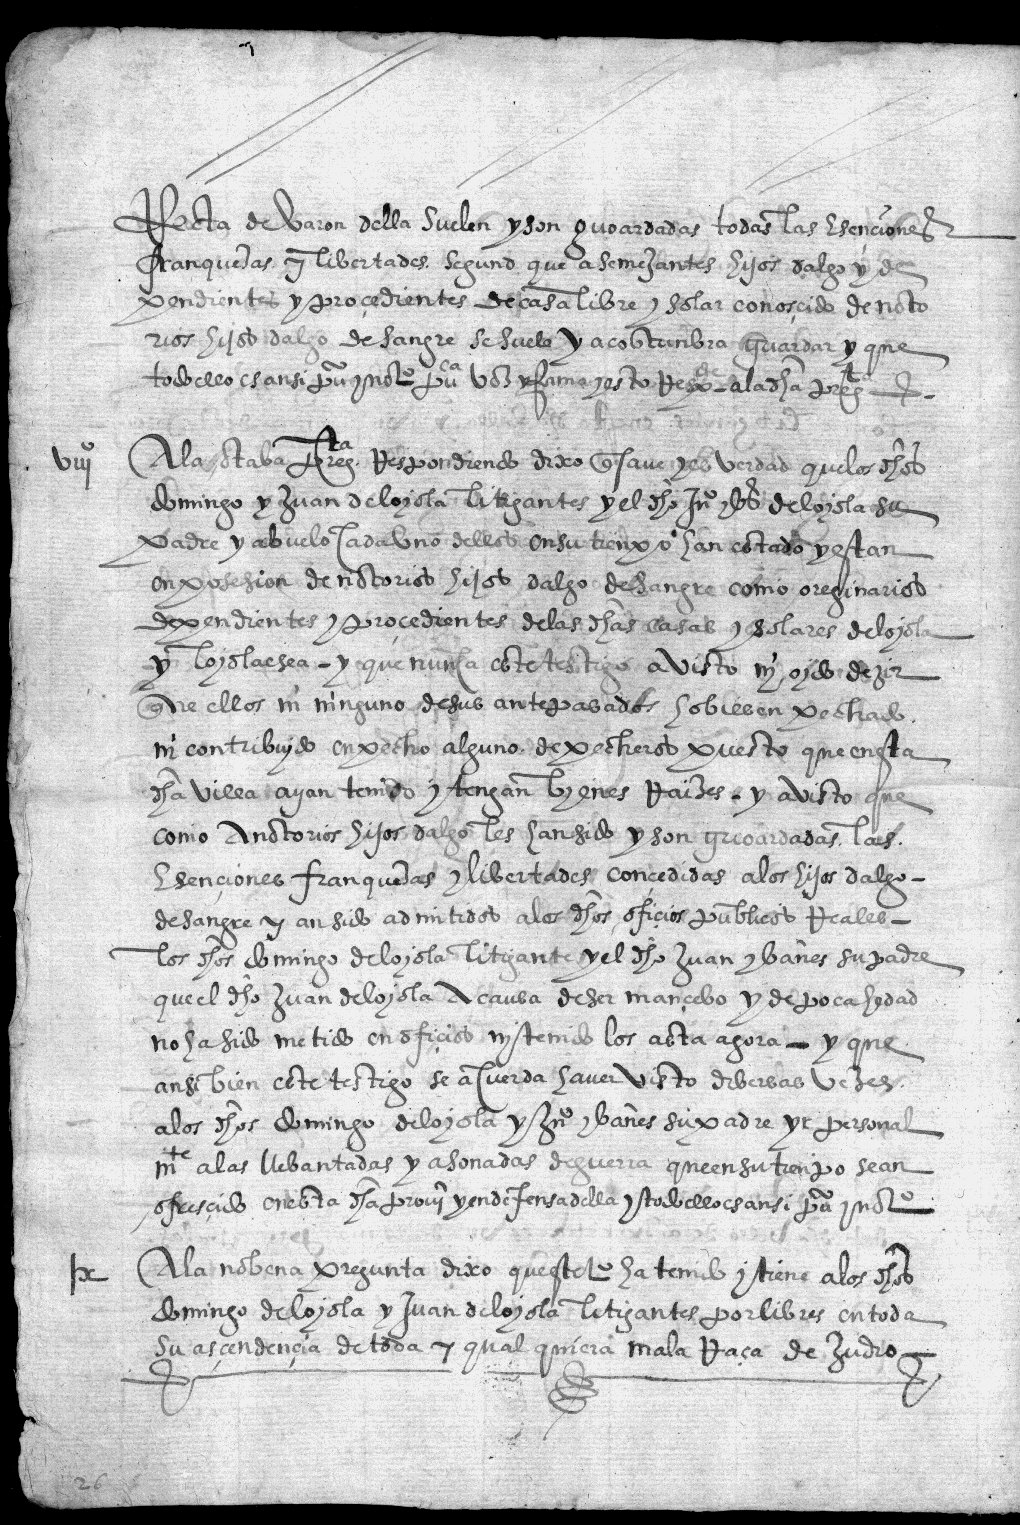 Recta de varon della suelen y son guoardadas todas las esençiones
franquezas y libertades segund que a semejantes hijos dalgo y de
pendientes y proçedientes de casa libre y solar conosçido de noto
rios hijos dalgo de sangre se suele y acostunbra guardar y que
todo ello es ansi pu^co y noto^o pu^ca voz y fama y esto Respde a la dha preg^ta
viij^o A la otaba preg^ta Respondiendo dixo q save y es verdad que los dhos
domingo y Juan de loyola litigantes y el dho Ju^o ybs de loyola su
padre y abuelo cada vno dellos en su tienpo han estado y estan
en posesion de notorios hijos dalgo de sangre como oreginarios
dependientes y proçedientes de las dhas casas y solares de loyola
y loyolaesea - y que nunca este testigo a visto ni oydo dezir
que ellos ni ninguno de sus antepasados hobiesen pechado
ni contribuydo en pecho alguno de pecheros puesto que en esta
dha villa ayan tenido y tengan byenes Raizes - y a visto que
como A notorios hijos dalgo les han sido y son guoardadas las
esençiones franquezas y libertades conçedidas a los hijos dalgo -
de sangre y an sido admitidos a los dhos ofiçios publicos Reales -
los dhos domingo de loyola litigante y el dho Juan ybañes su padre
que el dho Juan de loyola A causa de ser mançebo y de poca hedad
no ha sido metido en ofiçios ni tenido los asta agora - y que
ansi bien este testigo se acuerda haver visto diversas vezes
a los dhos domingo de loyola y Ju^o ybañes su padre yr personal
m^te a las llebantadas y asonadas de guerra que en su tienpo se an
ofresçido en esta dha prouj^a y en defensa della y todo ello es ansi pu^co y noto^o
ix A la nobena pregunta dixo que este t^o ha tenido y tiene a los dhos
domingo de loyola y Juan de loyola litigantes por libres en toda
su asçendençia de toda y qual quiera mala Raça de Judio
26